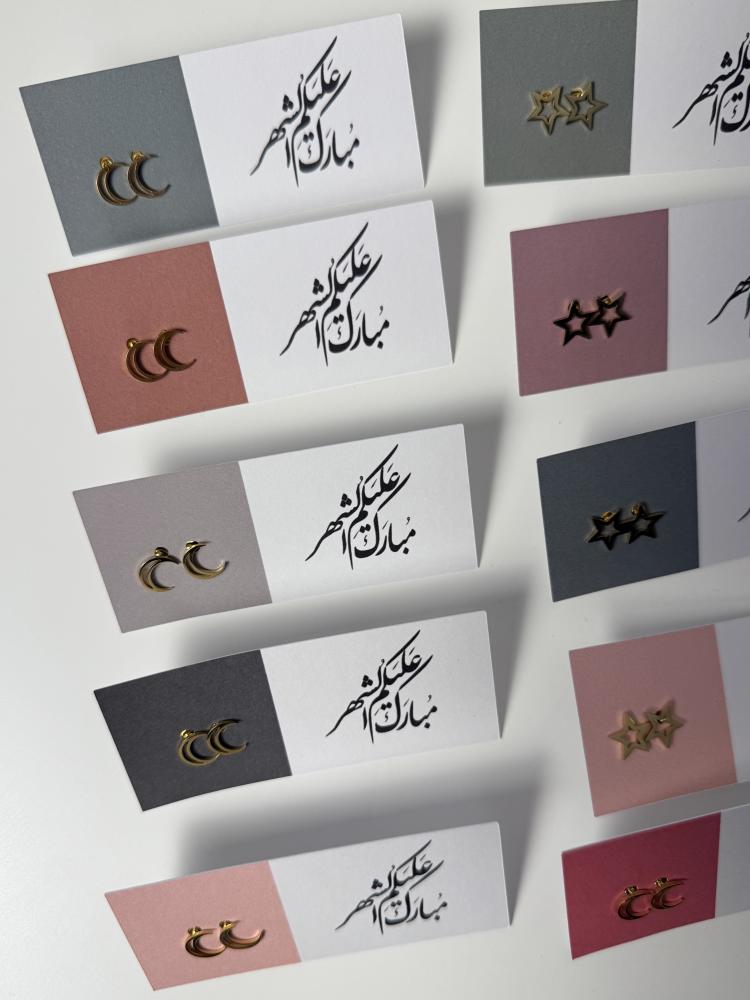 مبارك عليكم الشهر
مبارك عليكم الشهر
مبارك عليكم الشهر
مبارك عليكم الشهر
مبارك عليكم الشهر